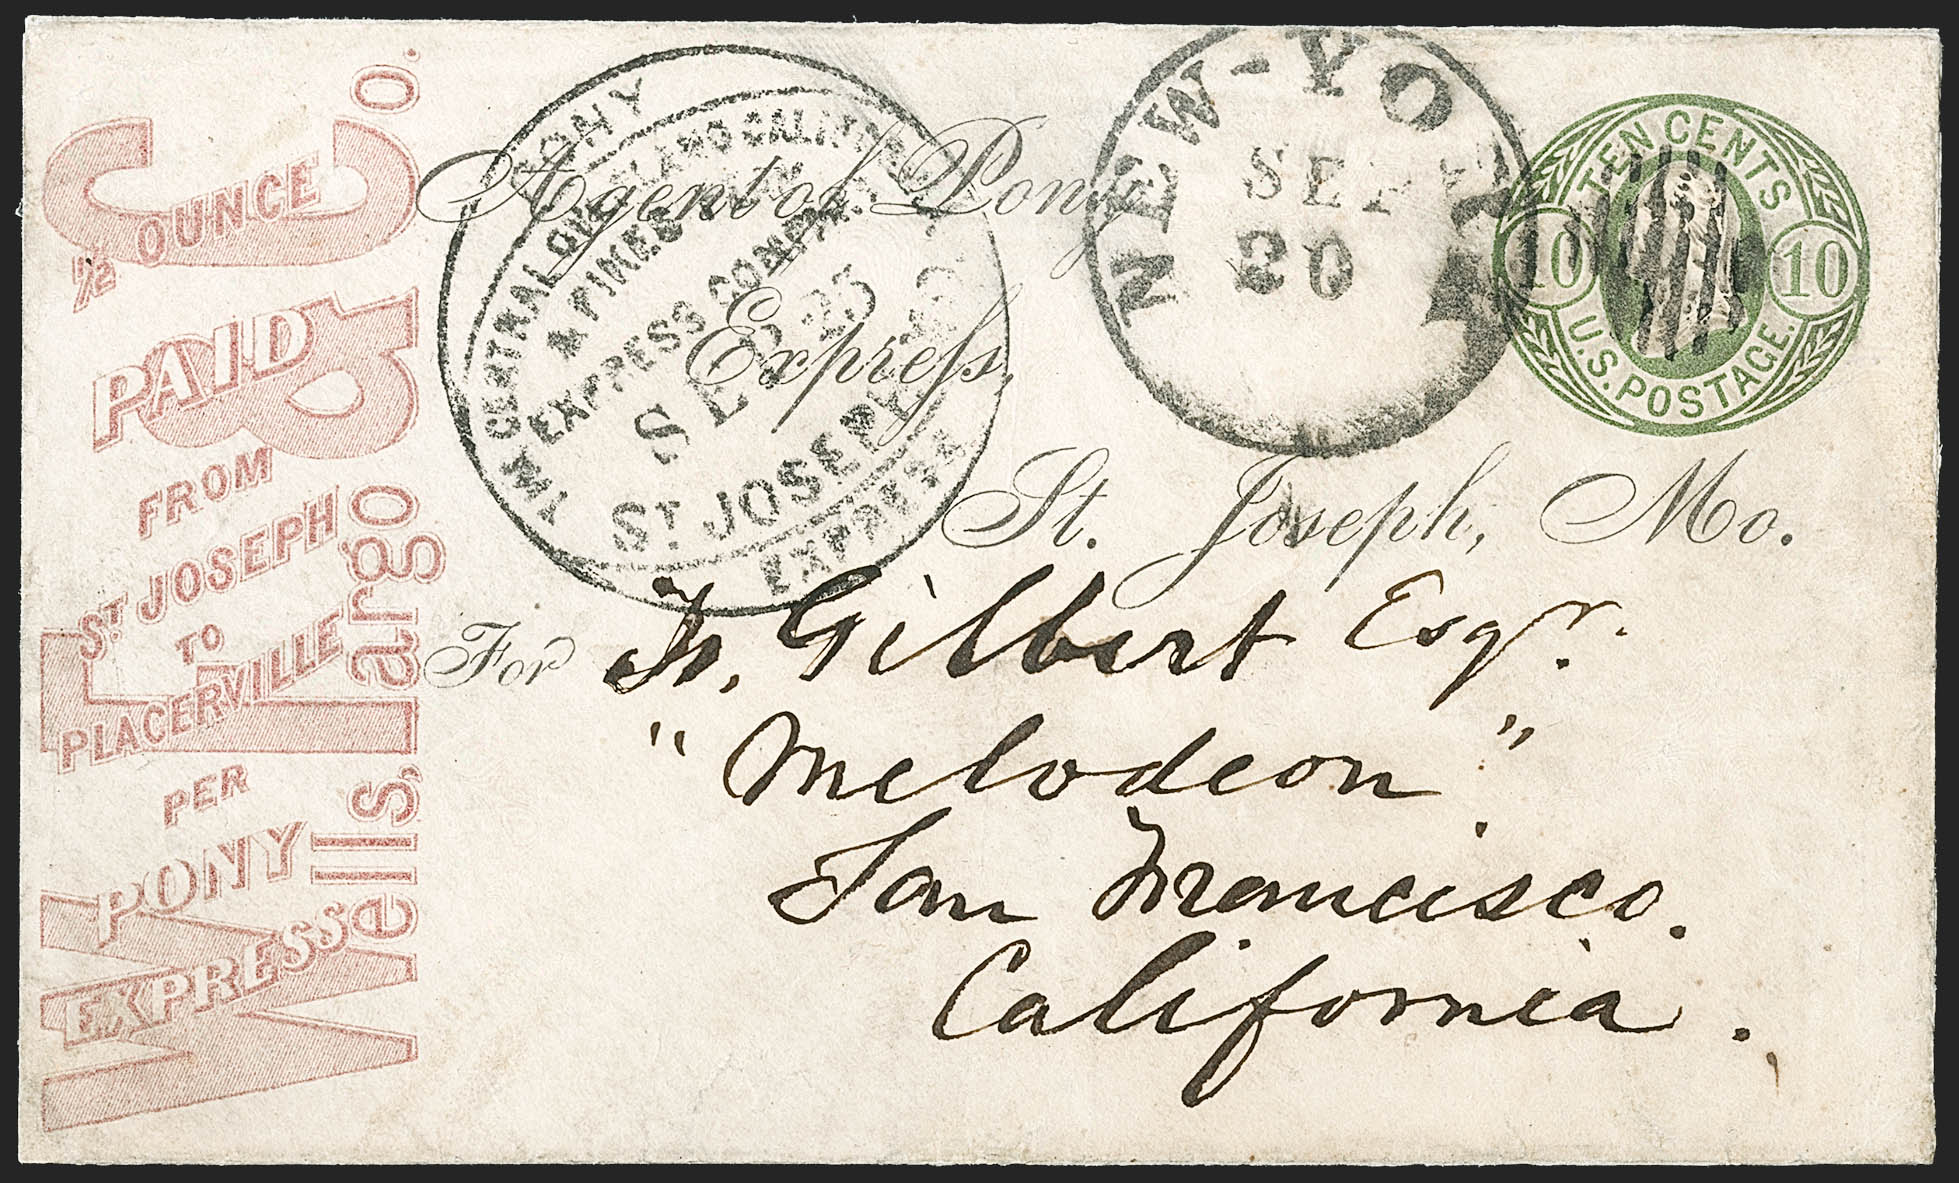 Wells, Fargo & Co.
½ OUNCE
PAID
FROM
ST JOSEPH
TO
PLACERVILLE
PER
PONY
EXPRESS
PONY
THE CENTRAL OVERLAND CALIFORNIA
& PIKES PEAK
EXPRESS COMPANY
SEP 23
ST JOSEPH MO.
EXPRESS
NEW-YORK
SEP
20
TEN CENTS
10 10
U.S. POSTAGE.
Agent of Pony
Express,
St. Joseph, Mo.
For Jn. Gilbert Esqr.
"Melodeon"
San Francisco.
California.